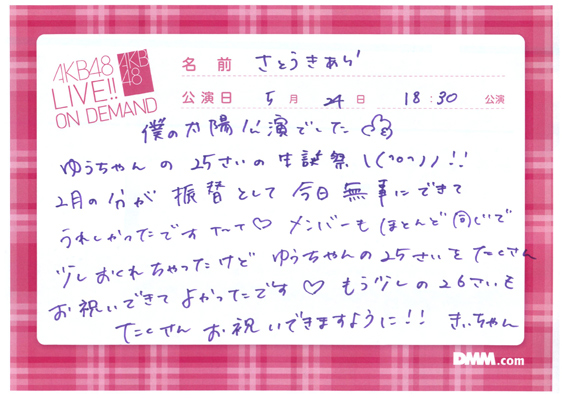 AKB48
LIVE!!
ON DEMAND
AKB
48
名前 さとうきあら
公演日 5月24日 18:30 公演
僕の太陽公演でした
ゆうちゃんの25さいの生誕祭\(^o^)/!!
2月の分が振替として今日無事にできて
うれしかったです T~T♡ メンバーもほとんど同じで
少しおくれちゃったけど ゆうちゃんの25さいをたくさん
お祝いできてよかったです♡ もう少しの26さいも
たくさんお祝いできますように!! きぃちゃん
DMM.com